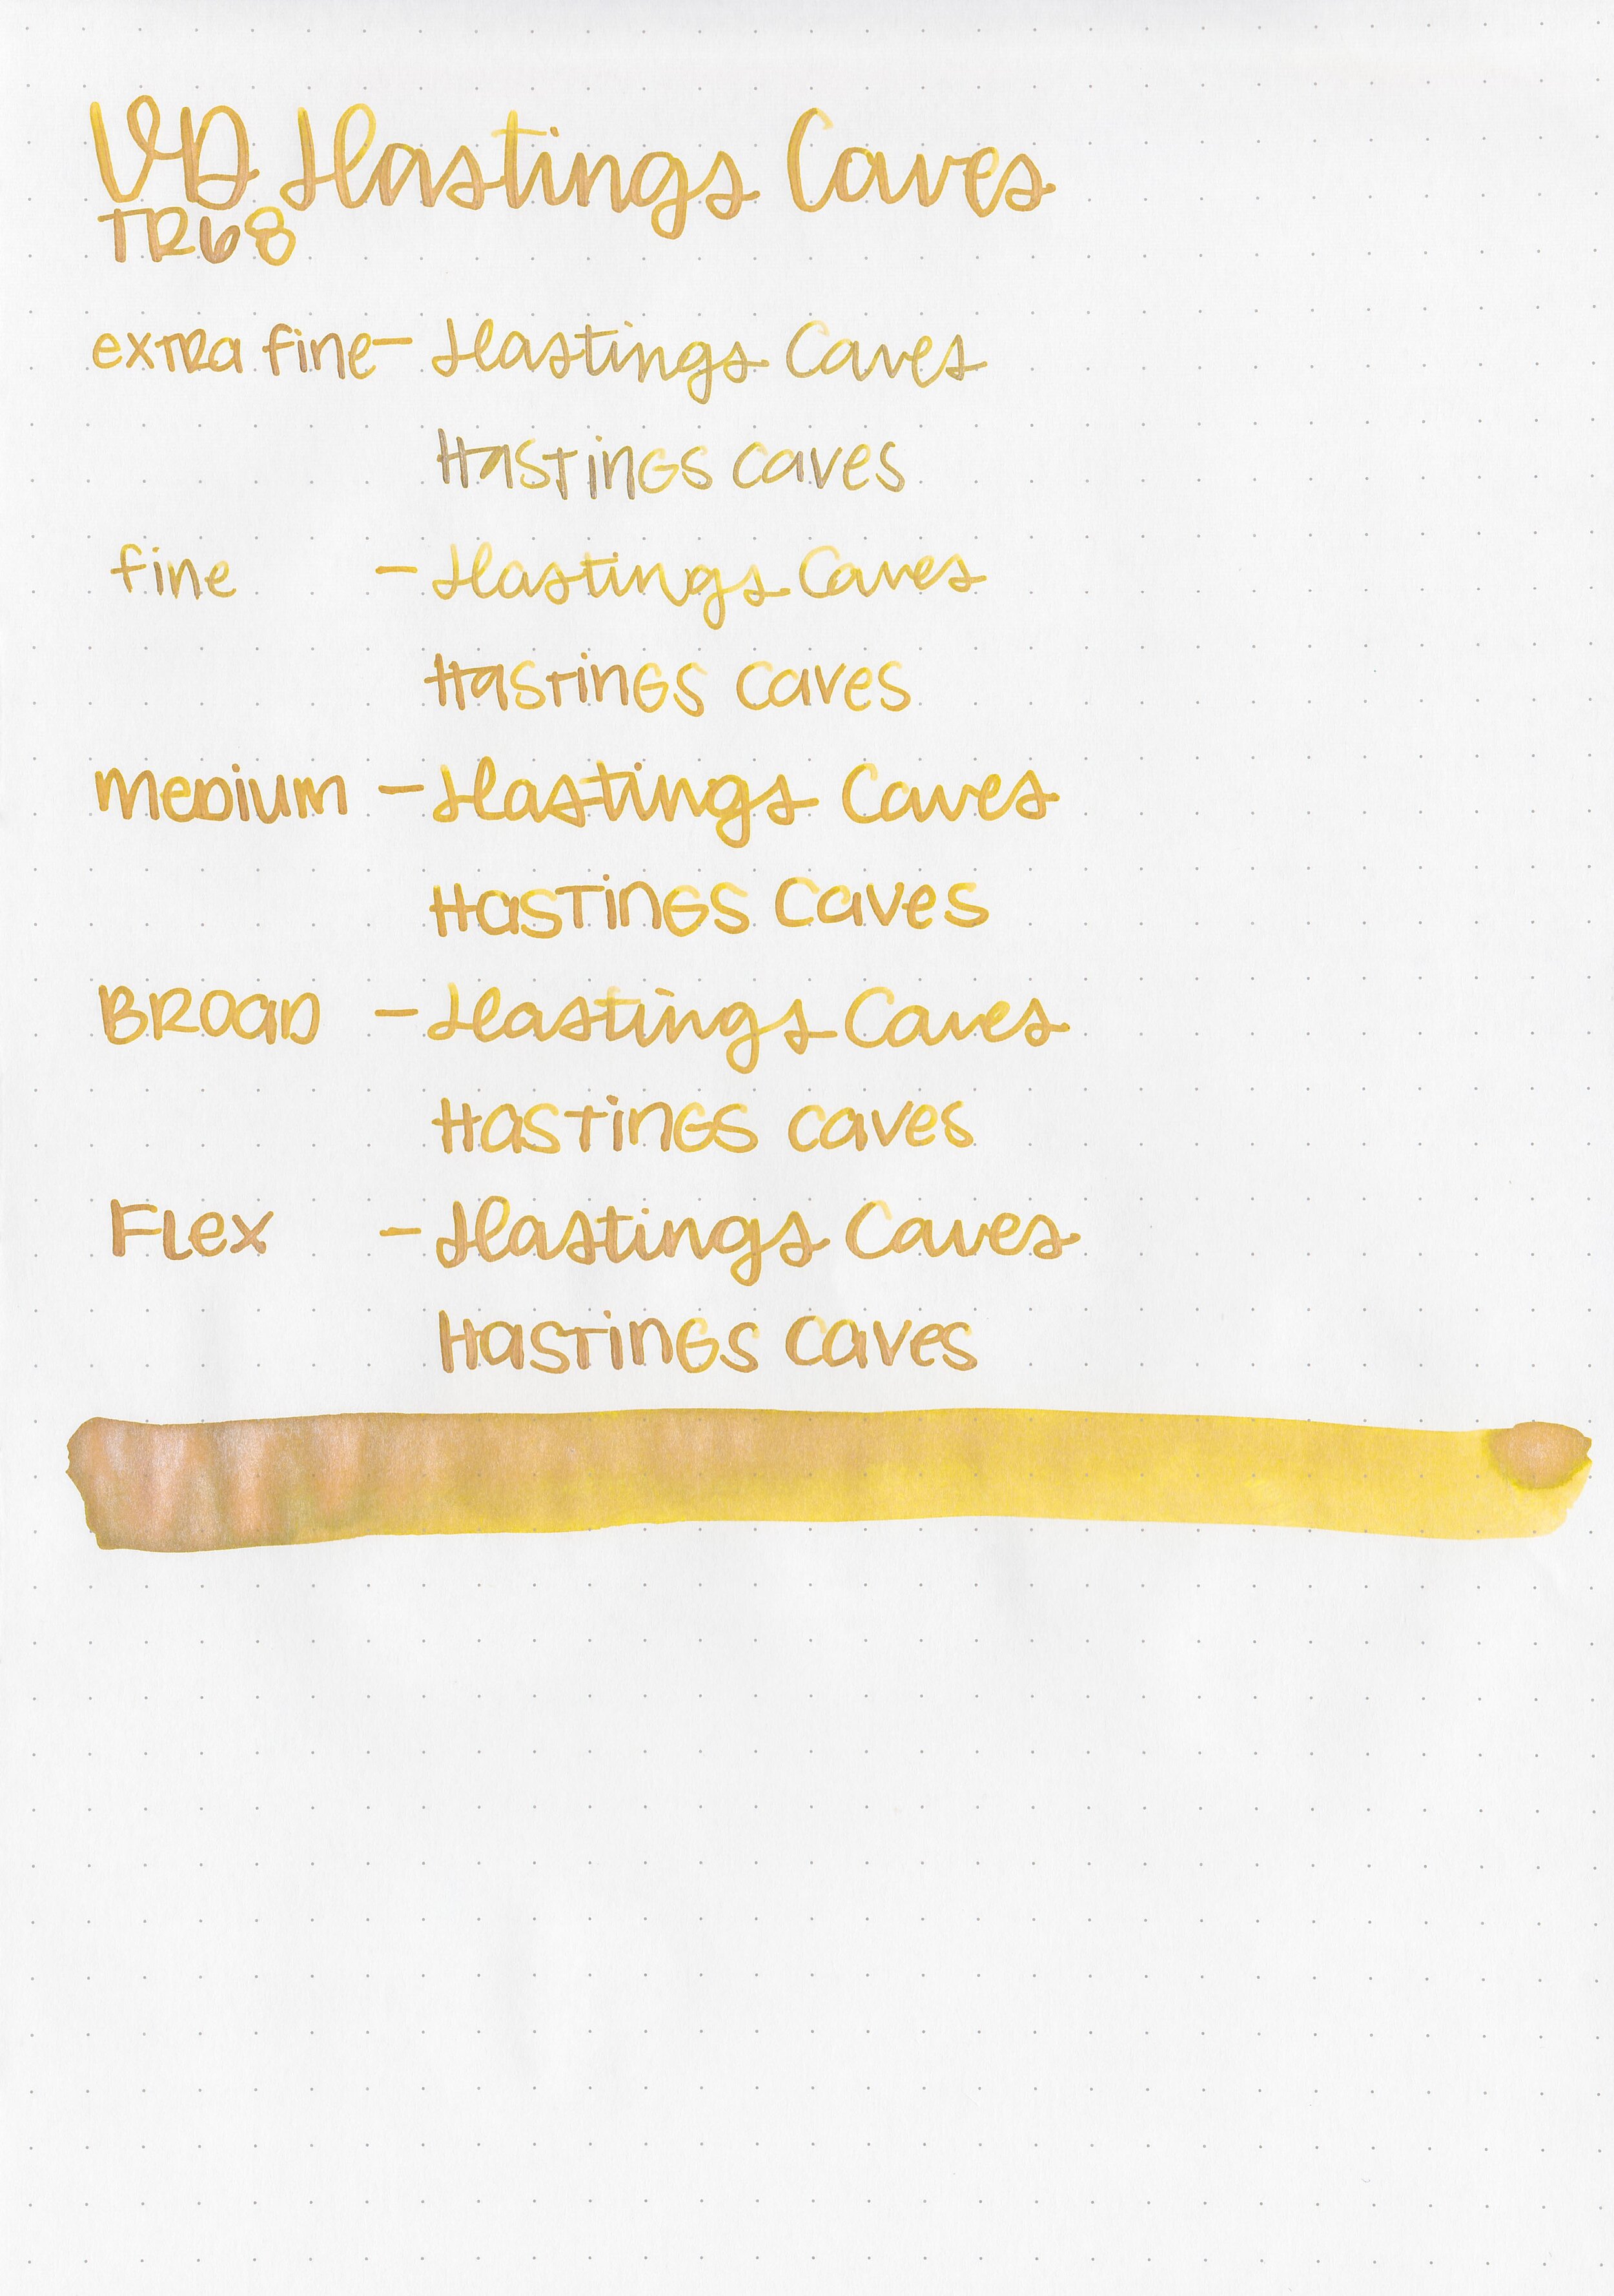 VD Hastings Caves
TR68
extra fine - Hastings Caves
Hastings Caves
fine - Hastings Caves
Hastings Caves
Medium - Hastings Caves
Hastings Caves
Broad - Hastings Caves
Hastings Caves
Flex - Hastings Caves
Hastings Caves